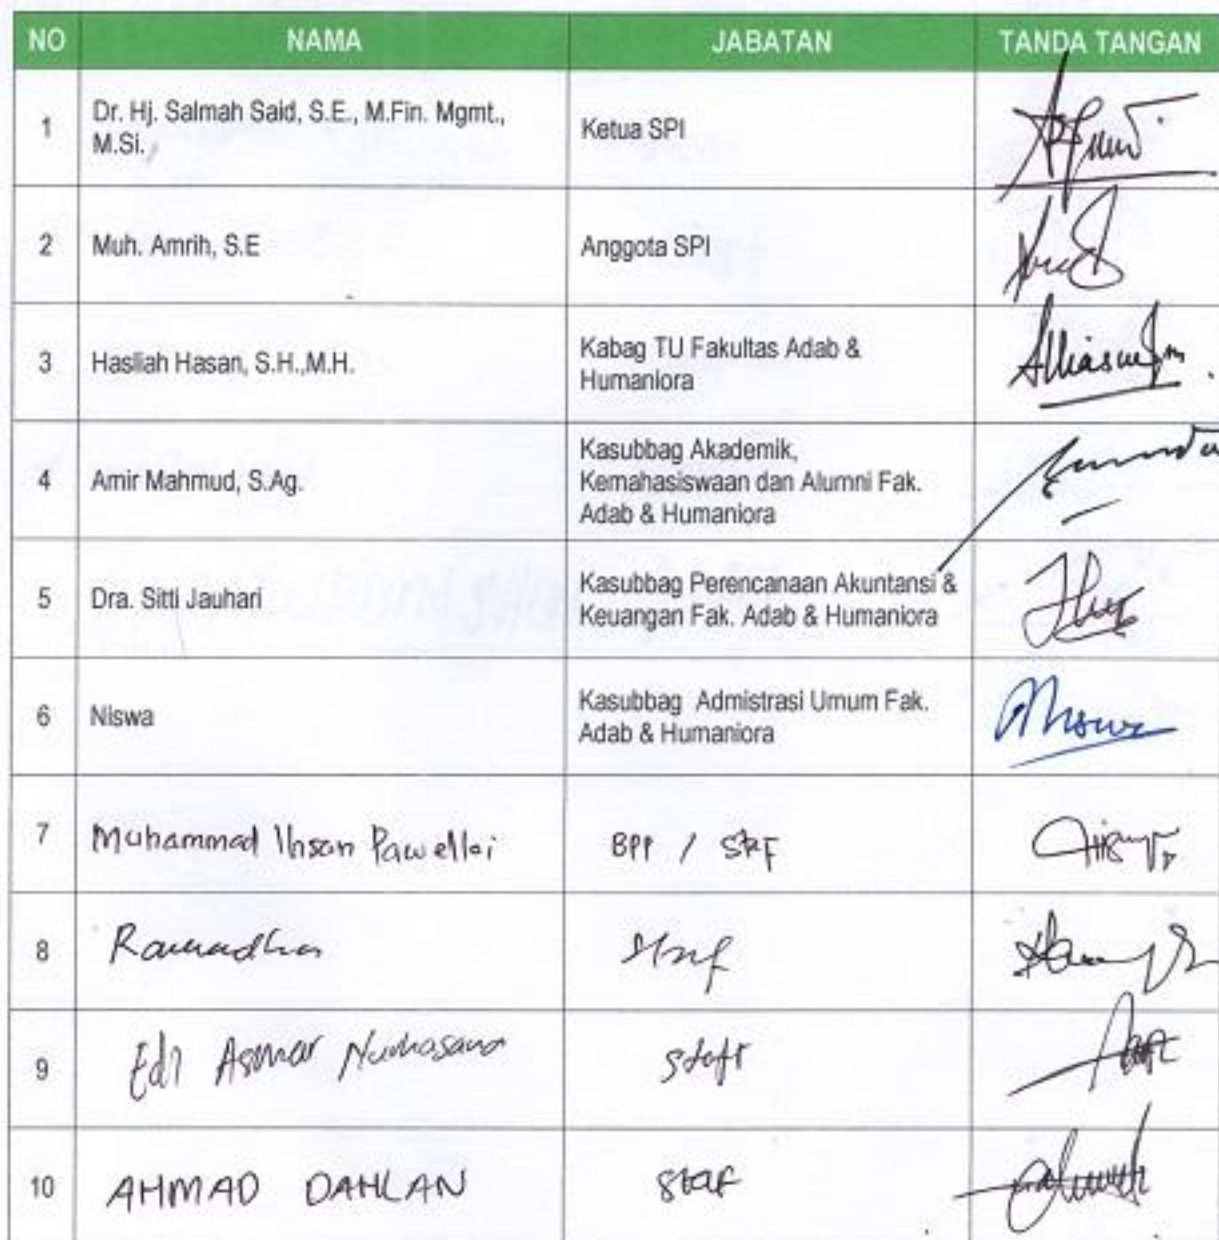 NO NAMA JABATAN TANDA TANGAN
1 Dr. Hj. Salmah Said, S.E., M.Fin. Mgmt., Ketua SPI
M.Si.
2 Muh. Amrih, S.E Anggota SPI
3 Hasliah Hasan, S.H.,M.H. Kabag TU Fakultas Adab &
Humaniora
4 Amir Mahmud, S.Ag. Kasubbag Akademik,
Kemahasiswaan dan Alumni Fak.
Adab & Humaniora
5 Dra. Sitti Jauhari Kasubbag Perencanaan Akuntansi &
Keuangan Fak. Adab & Humaniora
6 Niswa Kasubbag Admistrasi Umum Fak.
Adab & Humaniora
7 Muhammad Ihsan Pawelloi BPP /
8 Ramadhan Staf
9 Edi Asmar Staff
10 AHMAD DAHLAN Staf